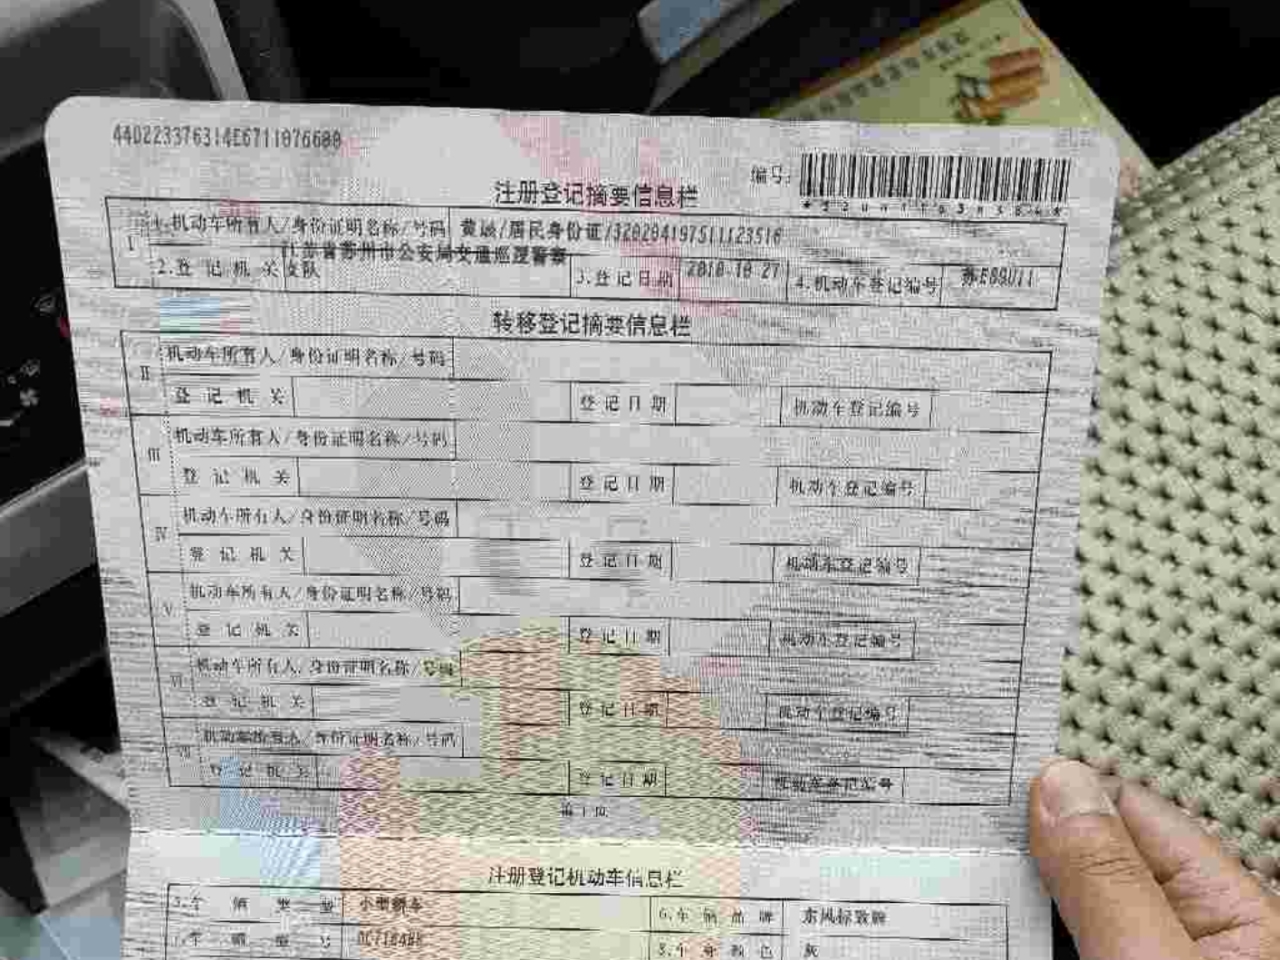 编号:
注册登记摘要信息栏
I 1.机动车所有人/身份证明名称/号码
2.登记机关 江苏省苏州市公安局交通巡逻警察支队 3.登记日期 2010-10-27 4.机动车登记编号
转移登记摘要信息栏
II 机动车所有人/身份证明名称/号码
登记机关 登记日期 机动车登记编号
III 机动车所有人/身份证明名称/号码
登记机关 登记日期 机动车登记编号
IV 机动车所有人/身份证明名称/号码
登记机关 登记日期 机动车登记编号
V 机动车所有人/身份证明名称/号码
登记机关 登记日期 机动车登记编号
VI 机动车所有人/身份证明名称/号码
登记机关 登记日期 机动车登记编号
VII 机动车所有人/身份证明名称/号码
登记机关 登记日期 机动车登记编号
第1页
注册登记机动车信息栏
5.车辆类型 小型轿车 6.车辆品牌 东风标致牌
7.车辆型号 8.车身颜色 灰